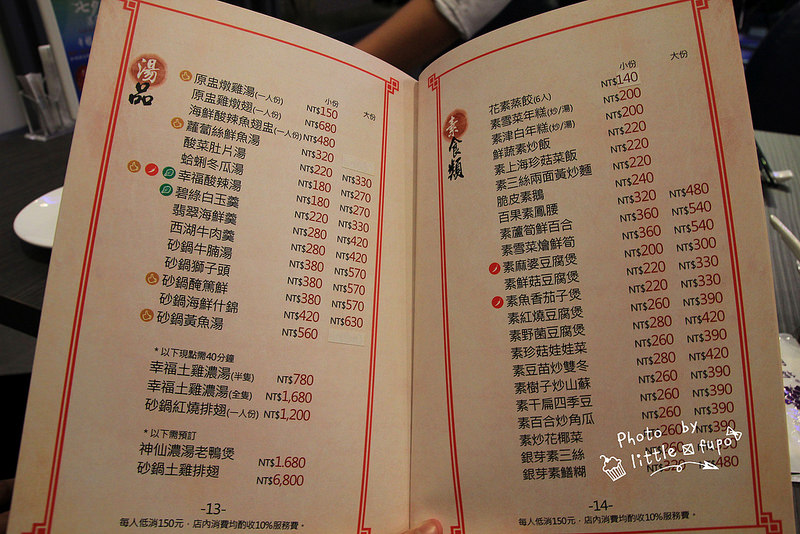 湯品
小份 大份
原盅燉雞湯(一人份) NT$150
原盅雞燉翅(一人份) NT$680
海鮮酸辣魚翅盅(一人份) NT$480
蘿蔔絲鮮魚湯 NT$320
酸菜肚片湯 NT$220 NT$330
蛤蜊冬瓜湯 NT$180 NT$270
幸福酸辣湯 NT$180 NT$270
碧綠白玉羹 NT$220 NT$330
翡翠海鮮羹 NT$280 NT$420
西湖牛肉羹 NT$280 NT$420
砂鍋牛腩湯 NT$380 NT$570
砂鍋獅子頭 NT$380 NT$570
砂鍋醃篤鮮 NT$380 NT$570
砂鍋海鮮什錦 NT$420 NT$630
砂鍋黃魚湯 NT$560
*以下現點需40分鐘
幸福土雞濃湯(半隻) NT$780
幸福土雞濃湯(全隻) NT$1,680
砂鍋紅燒排翅(一人份) NT$1,200
*以下需預訂
神仙濃湯老鴨煲 NT$1.680
砂鍋土雞排翅 NT$6,800
-13-
每人低消150元，店內消費均酌收10%服務費。
素食類
小份 大份
花素蒸餃(6入) NT$140
素雪菜年糕(炒/湯) NT$200
素津白年糕(炒/湯) NT$200
鮮蔬素炒飯 NT$220
素上海珍菇菜飯 NT$220
素三絲兩面黃炒麵 NT$220
脆皮素鵝 NT$240
百果素鳳腰 NT$320 NT$480
素蘆筍鮮百合 NT$360 NT$540
素雪菜燴鮮筍 NT$360 NT$540
素麻婆豆腐煲 NT$200 NT$300
素鮮菇豆腐煲 NT$220 NT$330
素魚香茄子煲 NT$220 NT$330
素紅燒豆腐煲 NT$260 NT$390
素野菌豆腐煲 NT$280 NT$420
素珍菇娃娃菜 NT$260 NT$390
素豆苗炒雙冬 NT$280 NT$420
素樹子炒山蘇 NT$260 NT$390
素干扁四季豆 NT$260 NT$390
素百合炒角瓜 NT$260 NT$390
素炒花椰菜 NT$260 NT$390
銀芽素三絲
銀芽素鱔糊 NT$480
-14-
每人低消150元，店內消費均酌收10%服務費。
Photo by
little fupo